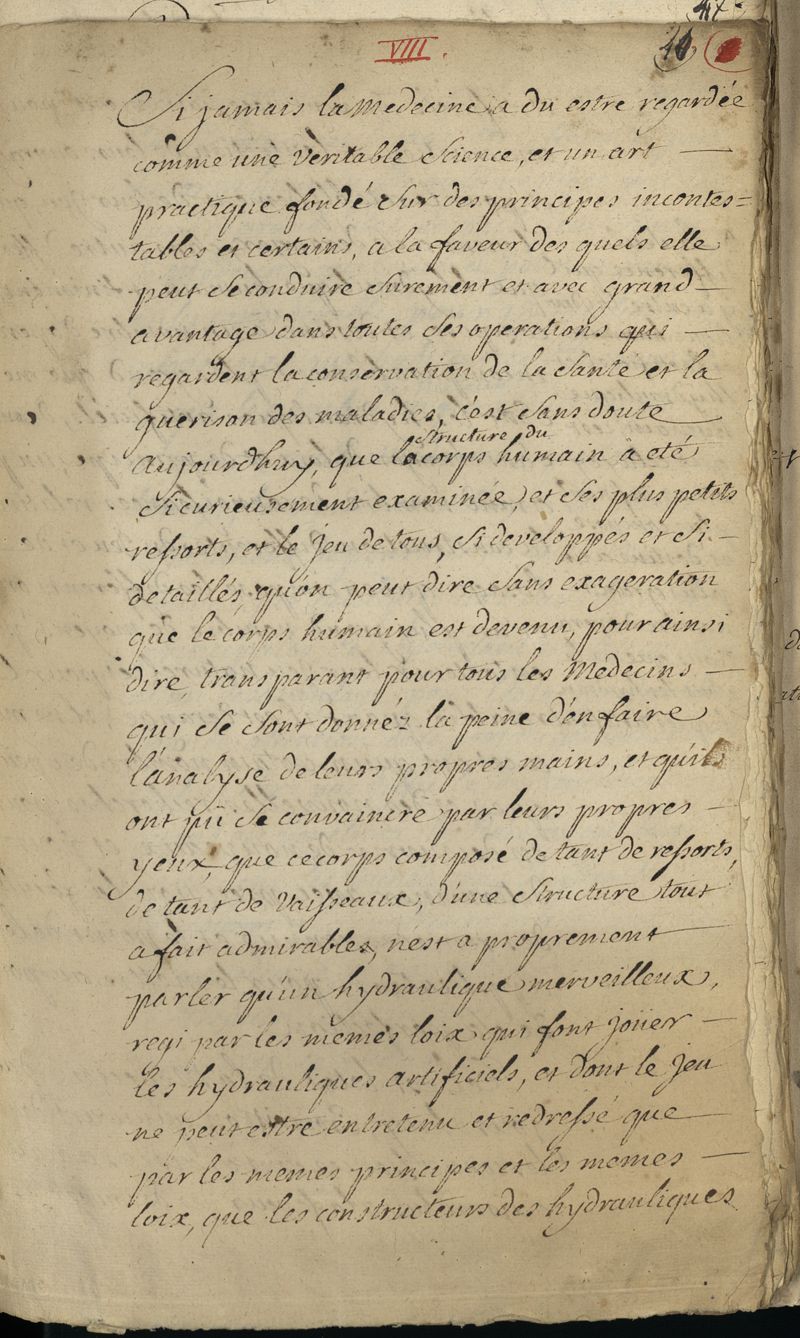 47
VIII.
Si jamais la Medecine a du estre regardée
comme une veritable Science, et un art —
practique fondé sur des principes incontes=
tables et certains, a la faveur des quels elle
peut se conduire surement et avec grand —
avantage dans toutes ses operations qui —
regardent la conservation de la santé et la
guerison des maladies, c'est sans doute
structure du
Aujourdhuy, que la corps humain a eté
si curieusement examinée, et ses plus petits
ressorts, et le jeu de tous, si developpés et si —
detaillés qu'on peut dire sans exageration
que le corps humain est devenu, pour ainsi
dire, transparant pour tous les Medecins —
qui se sont donnéz la peine d'en faire
l'analyse de leurs propres mains, et qu'ils
ont pü se convaincre par leurs propres —
yeux, que ce corps composé de tant de ressorts,
de tant de vaisseaux, d'une structure tout
a fait admirables, n'est a proprement
parler qu'un hydraulique merveilleux,
regi par les memes loix qui font joüer —
les hydrauliques artificiels, et dont le jeu
ne peut estre entretenu et redressé que
par les memes principes et les memes —
loix, que les constructeurs des hydrauliques